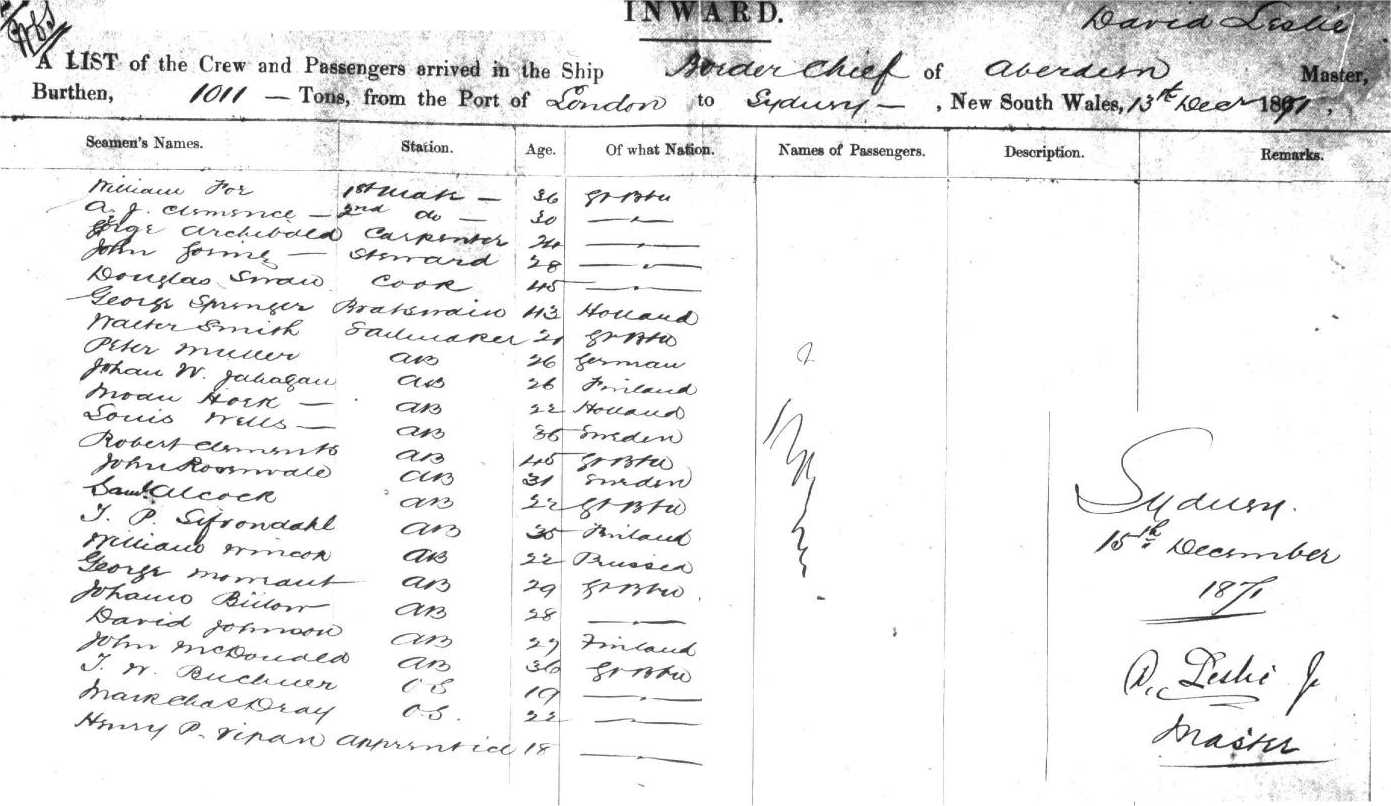 INWARD.
David Leslie
A LIST of the Crew and Passengers arrived in the Ship Border Chief of Aberdeen, Master,
Burthen, 1011 — Tons, from the Port of London to Sydney — , New South Wales, 13th Decr 1871.
Seamen's Names. Station. Age. Of what Nation. Names of Passengers. Description. Remarks.
William Fox 1st Mate — 36 Gt Btn
A. J. Clemence — 2nd do — 30 — " —
George Archibald Carpenter 24 — " —
John — Steward 28 — " —
Douglas Swan Cook 45 — " —
George Sprenger Boatswain 43 Holland
Walter Smith Sailmaker 21 Gt Btn
Peter Muller AB 26 German
Johan W. AB 26 Finland
Hoek — AB 22 Holland
Louis Wells — AB 36 Sweden
Robert Clements AB 45 Gt Btn
John Rosenvale AB 31 Sweden
Saml Alcock AB 22 Gt Btn
T. P. AB 35 Finland
William AB 22 Prussia
George AB 29 Gt Btn
Bülow AB 28 — " —
David Johnson AB 27 Finland
John McDonald AB 36 Gt Btn
T. W. Buchner O S 19 — " —
Mark Chas Dray O S. 22 — " —
Henry P. Vipan Apprentice 18 — " —
Sydney.
15th December
1871
D. Leslie Jr
Master